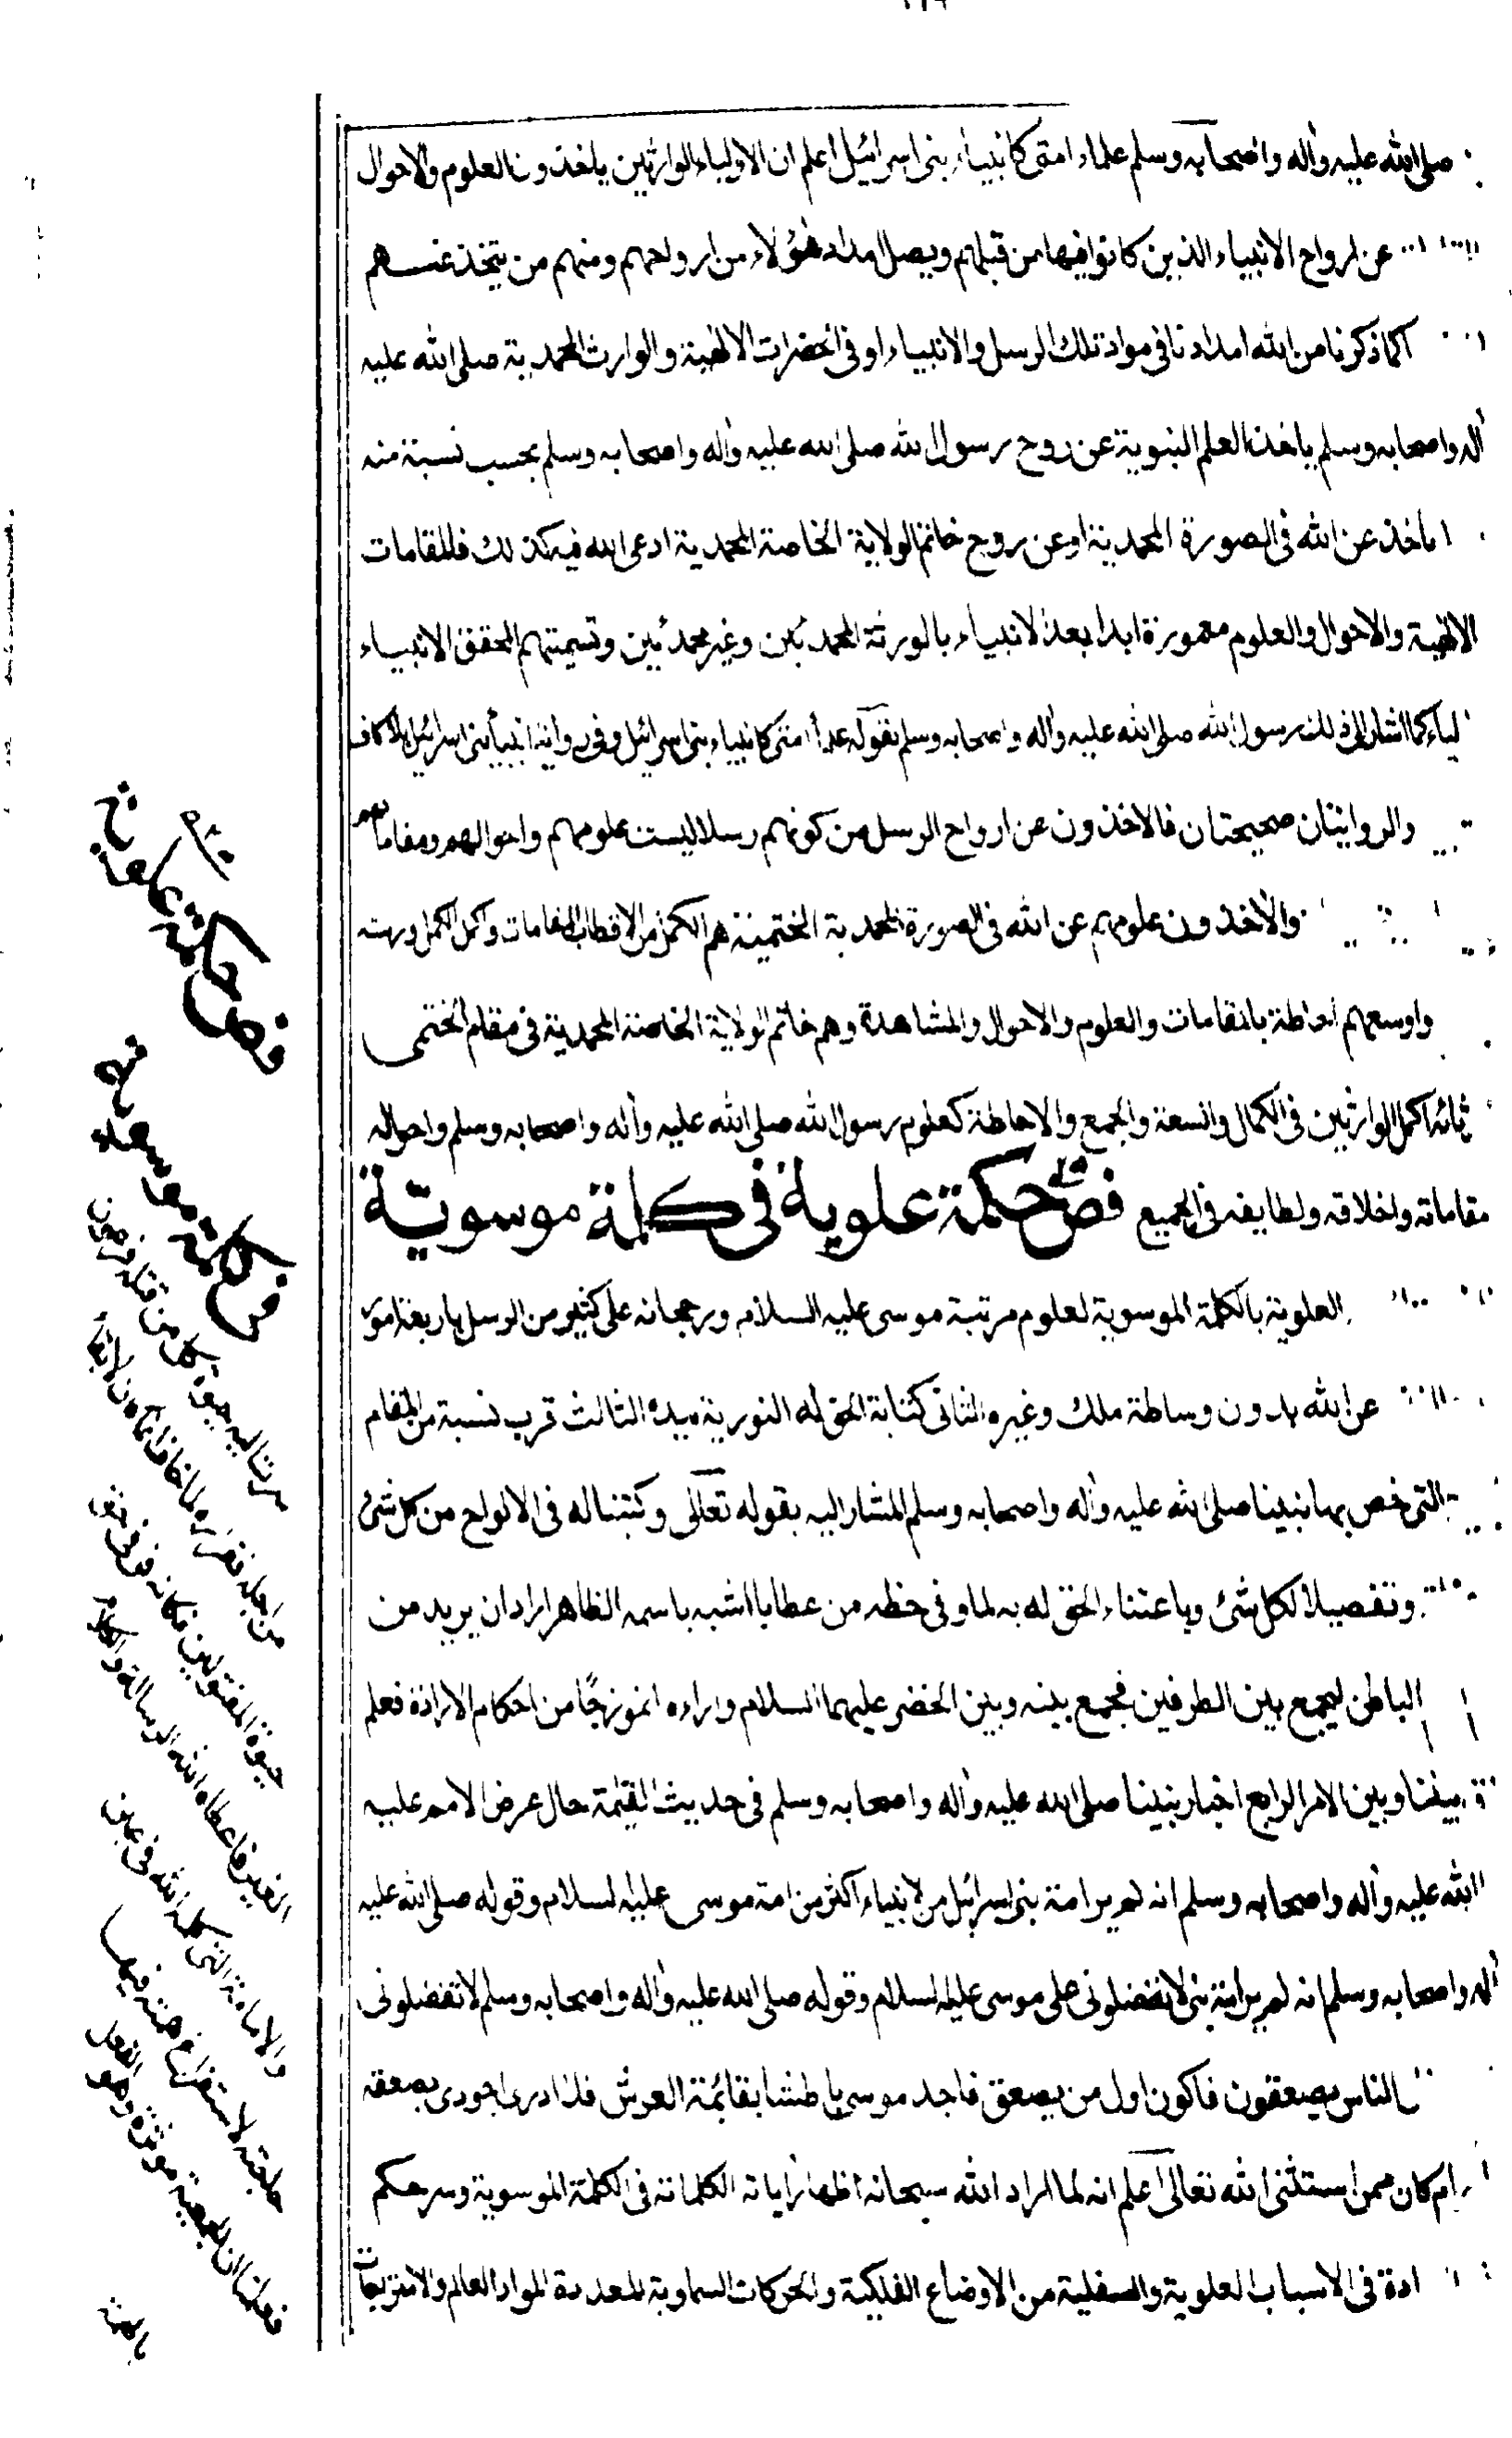 صلى الله عليه وآله واصحابه وسلم علماء امتى كانبياء بنى اسرائيل اعلم ان الاولياء الوارثين ياخذون العلوم والاحوال
عن ارواح الانبياء الذين كانوا فيها من قبلهم ويصل امداد هؤلاء من ارواحهم ومنهم من يتخذ عنهم
كما ذكرنا من الله امدادنا فى مواد تلك الرسل والانبياء او فى الحضرات الالهية والوارث المحمدية صلى الله عليه
آله واصحابه وسلم ياخذ العلم النبوية عن روح رسول الله صلى الله عليه وآله واصحابه وسلم بحسب نسبة منه
ياخذ عن الله فى الصورة المحمدية او عن روح خاتم الولاية الخاصة المحمدية ادعى الله فيه كذلك فللمقامات
الالهية والاحوال والعلوم معمورة ابدا بعد الانبياء بالورثة المحمديين وغير محمديين وتسميتهم المحقق الانبياء
لياء كما اشار الى ذلك رسول الله صلى الله عليه وآله واصحابه وسلم بقوله علماء امتى كانبياء بنى اسرائيل وفى رواية انبياء بنى اسرائيل بلا كاف
والروايتان صحيحتان فالاخذون عن ارواح الرسل من كونهم رسلا ليست علومهم واحوالهم ومقاماتهم
والآخذون علومهم عن الله فى الصورة المحمدية الختمية هم الكمل من الاقطاب المقامات واكمل الكمل ورثة
واوسعهم احاطة بالمقامات والعلوم والاحوال والمشاهدة وهم خاتم الولاية الخاصة المحمدية فى مقام الختمى
ثانه اكمل الوارثين فى الكمال والسعة والجمع والاحاطة كعلوم رسول الله صلى الله عليه وآله واصحابه وسلم واحواله
مقاماته واخلاقه ولطايفه فى الجميع فص حكمة علوية فى كلمة موسوية
العلوية بالكلمة الموسوية لعلوم مرتبة موسى عليه السلام ورجحانه على كثير من الرسل باربعة امور
عن الله بدون وساطة ملك وغيره الثانى كتابة الحق له التورية بيده الثالث قرب نسبة من المقام
التى خص بها نبينا صلى الله عليه وآله واصحابه وسلم المشار اليه بقوله تعالى وكتبنا له فى الالواح من كل شئ
وتفصيلا لكل شئ وباعتناء الحق له به لما وفى حظه من عطايا اشبه باسمه الظاهر اراد ان يريد من
الباطن ليجمع بين الطرفين فجمع بينه وبين الخضر عليهما السلام واراه انموزجًا من احكام الارادة فعلم
بيننا وبين الامر الرابع اخبار نبينا صلى الله عليه وآله واصحابه وسلم فى حديث القيمة حال عرض الامم عليه
الله عليه وآله واصحابه وسلم انه لم ير امة بنى اسرائيل من الانبياء اكثر من امة موسى عليه السلام وقوله صلى الله عليه
آله واصحابه وسلم انه لم ير امة بنى لا تفضلونى على موسى عليه السلام وقوله صلى الله عليه وآله واصحابه وسلم لا تفضلونى
الناس يصعقون فاكون اول من يصعق فاجد موسى باطشا بقائمة العرش فلا ادرى اجوزى بصعقه
ام كان ممن استثنى الله تعالى اعلم انه لما اراد الله سبحانه اظهار اياته الكلماتة فى الكلمة الموسوية وسر حكم
ادة فى الاسباب العلوية والسفلية من الاوضاع الفلكية والحركات السماوية المعددة المواد العالم والامتزيجات
فص حكمة علوية
فى كلمة موسوية
سرت اليه حيوة كل من قتله فرعون
من اجله ففراره لما خاف انما كان لابقاء
حيوة المقتولين فكانه فر فى حق
الغير فاعطاه الله الرسالة والكلام
والامامة التى كلمه الله فى عين
حاجته لاستفراغ همه فيها
فعلمنا ان الجمعية موثرة وهو الفعل
بالهمة